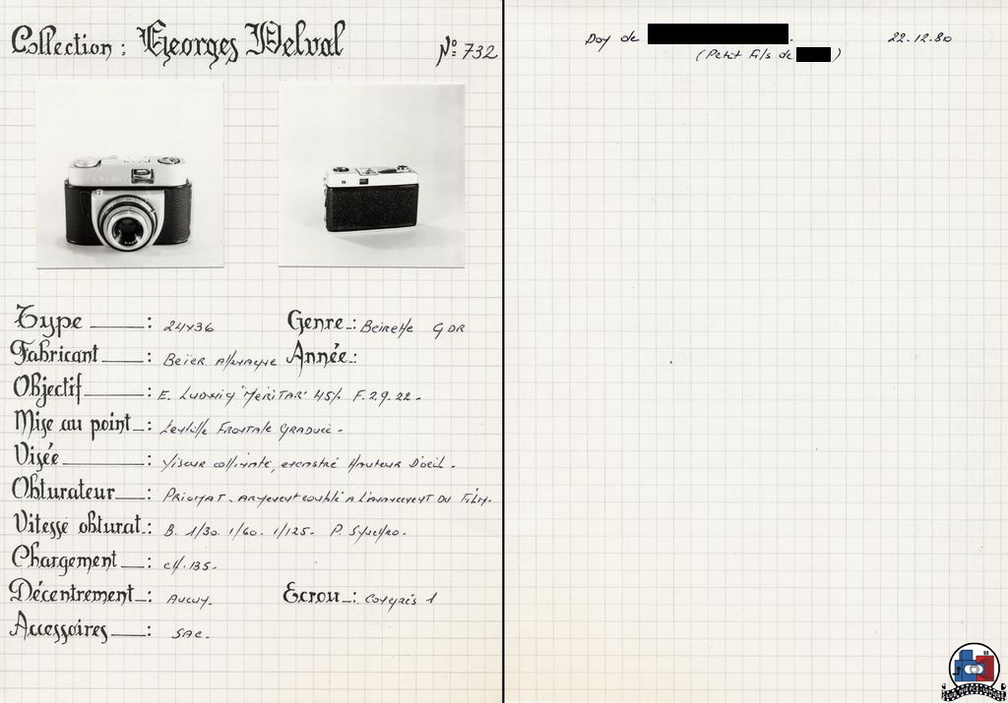 Collection : Georges Delval N° 732
Type : 24x36 Genre : Beirette GDR
Fabricant : Beier Allemagne Année :
Objectif : E. Ludwig "Meritar" 45% F.2.9.22.
Mise au point : Lentille Frontale Graduée.
Visée : Viseur collimaté, encastré Hauteur D'oeil.
Obturateur : PRIOMAT. armement couplé A L'avancement DU Film.
Vitesse obturat : B. 1/30. 1/60. 1/125. P. Synchro.
Chargement : ch. 135.
Décentrement : Aucun. Ecrou : Congrès 1
Accessoires : SAC.
Don de 22.12.80
(Petit Fils de )